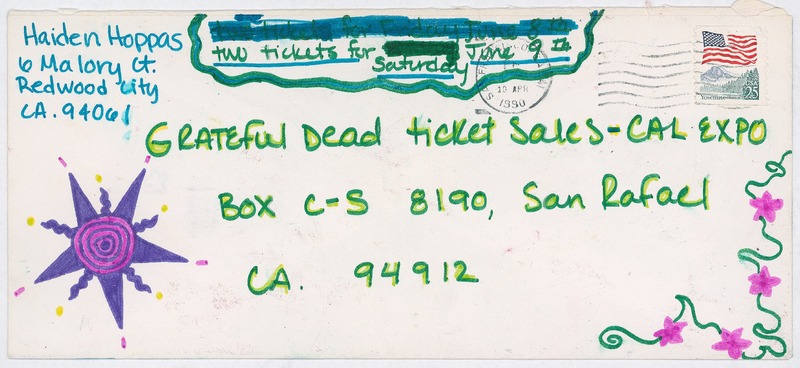 Haiden Hoppas
6 Malory Ct.
Redwood City
CA. 94061
two tickets for Friday June 8th
two tickets for June 9th
Saturday
10 APR
1990
Yosemite
USA
25
GRATEFUL Dead ticket Sales-CAL EXPO
BOX C-S 8190, San Rafael
CA. 94912